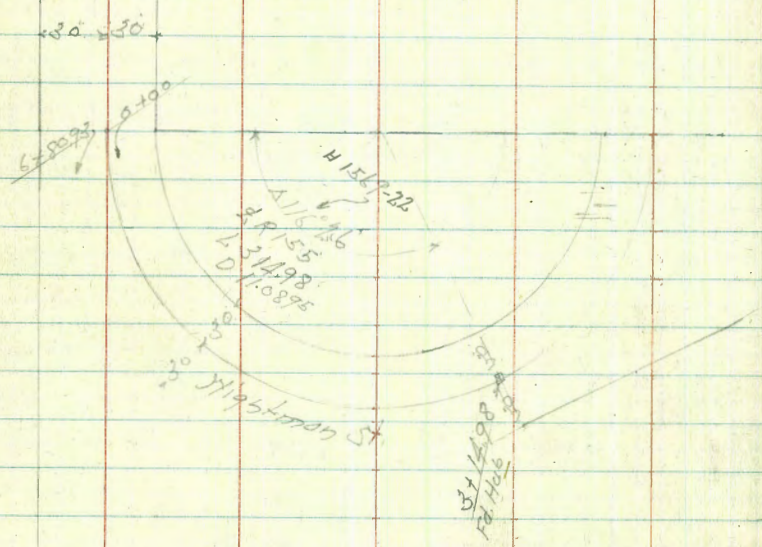 30 30
0+00
6+80.93
H 1569-22
Δ 116°26'
R 155
L 314.98
D 11.0895
30
30
St.
3+14.98
Fd. Hub